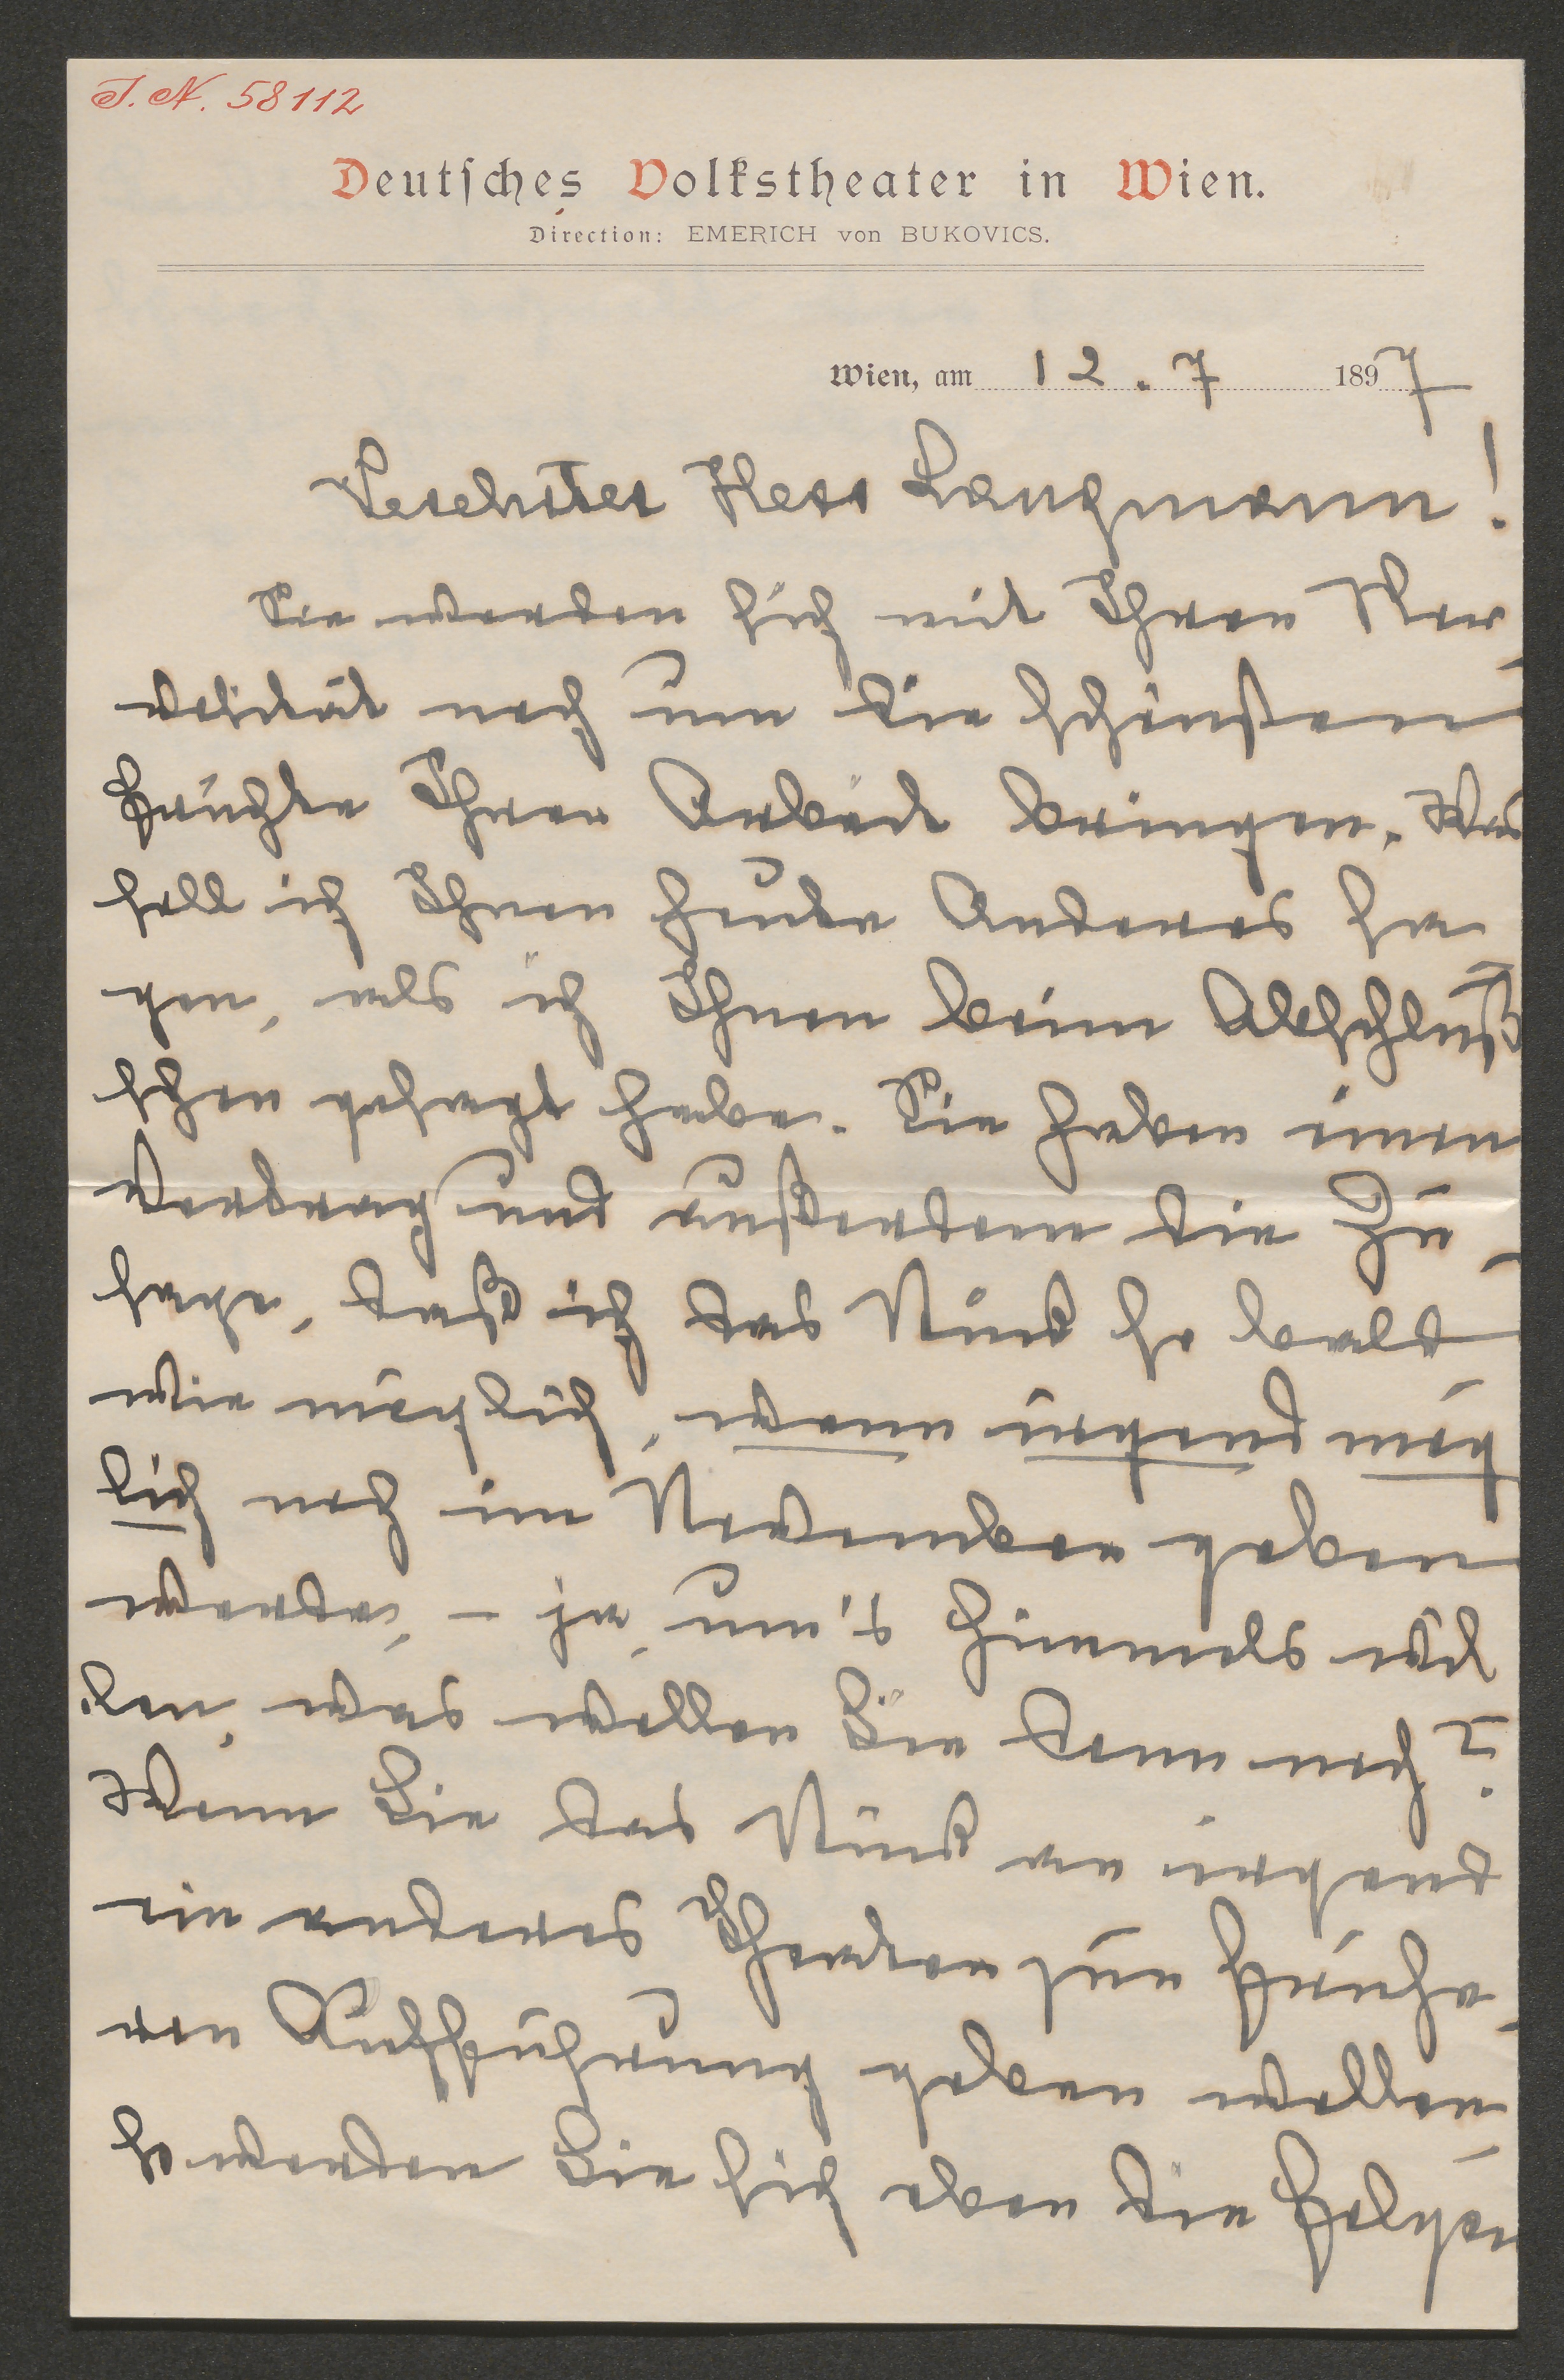 I. N. 58112
Deutsches Volkstheater in Wien.
Direction: EMERICH von BUKOVICS.
Wien, am 12. 7 1897
Verehrter Herr Langmann!
Sie werden sich mit Ihrer Ner-
vosität noch um die schönsten
Früchte Ihrer Arbeit bringen. Was
soll ich Ihnen heute Anderes sa
gen, als ich Ihnen beim Abschluß
schon gesagt habe. Sie haben einen
Vertrag und außerdem die Zu-
sage, daß ich das Stück so bald
wie möglich, wenn irgend mög
lich noch im November geben
werde, – ja, um's Himmels wil
len, was wollen Sie denn noch?
Wenn Sie das Stück an irgend
ein anderes Theater zur frühe-
ren Aufführung geben wollen
so werden Sie sich eben die Folgen